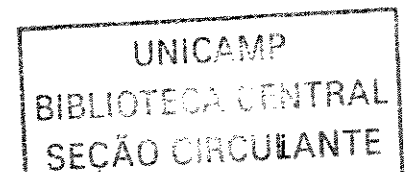 UNICAMP
BIBLIOTECA CENTRAL
SEÇÃO CIRCULANTE